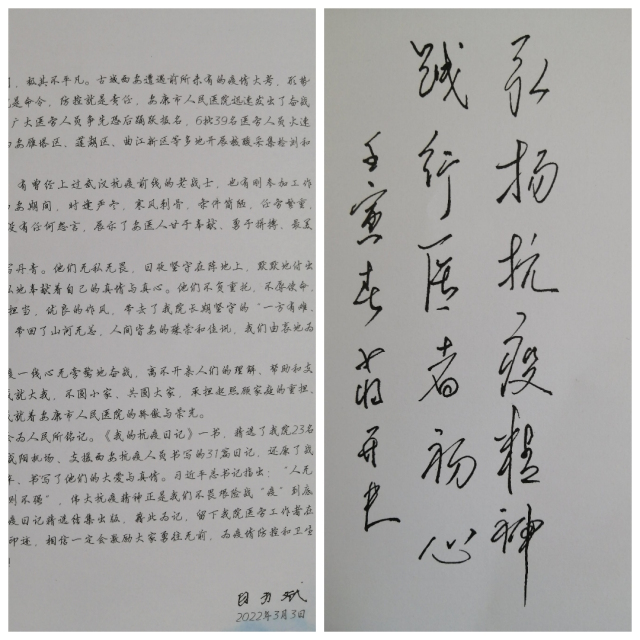 ，极其不平凡。古城西安遭遇前所未有的疫情大考，形势
是命令，防控就是责任，安康市人民医院迅速发出了奋战
广大医务人员争先恐后踊跃报名，6批39名医务人员火速
安雁塔区、莲湖区、曲江新区等多地开展核酸采集检测和
有曾经上过武汉抗疫前线的老战士，也有刚参加工作
安期间，时逢严冬，寒风刺骨，条件简陋，任务繁重，
没有任何怨言，展示了安医人甘于奉献、勇于拼搏、最美
写丹青。他们无私无畏，日夜坚守在阵地上，默默地付出
地奉献着自己的真情与真心。他们不负重托、不辱使命，
担当、优良的作风，带去了我院长期坚守的“一方有难、
带回了山河无恙，人间皆安的臻荣和佳讯，我们由衷地为
一线心无旁骛地奋战，离不开亲人们的理解、帮助和支
就大我，不图小家，共圆大家，承担起照顾家庭的重担，
就着安康市人民医院的骄傲与荣光。
为人民所铭记。《我的抗疫日记》一书，精选了我院23名
咸阳机场、支援西安抗疫人员书写的31篇日记，还原了战
，书写了他们的大爱与真情。习近平总书记指出：“人无
则不强”，伟大抗疫精神正是我们不畏艰险战“疫”到底
疫日记精选结集出版，藉此为记，留下我院医务工作者在
印迹，相信一定会激励大家勇往无前，为疫情防控和卫生
！
2022年3月3日
弘扬抗疫精神
践行医者初心
壬寅春 翁开